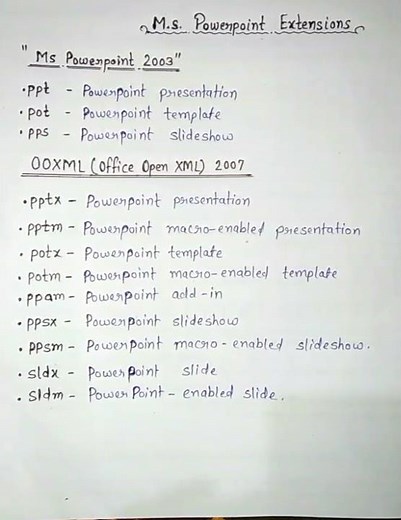 M.s. Powerpoint Extensions
"Ms Powerpoint 2003"
.ppt - Powerpoint presentation
.pot - Powerpoint template
.pps - Powerpoint slideshow
OOXML (Office Open XML) 2007
.pptx - Powerpoint presentation
.pptm - Powerpoint macro-enabled presentation
.potx - Powerpoint template
.potm - Powerpoint macro-enabled template
.ppam - Powerpoint add-in
.ppsx - Powerpoint slideshow
.ppsm - Powerpoint macro-enabled slideshow.
.sldx - Powerpoint slide
.sldm - PowerPoint-enabled slide.